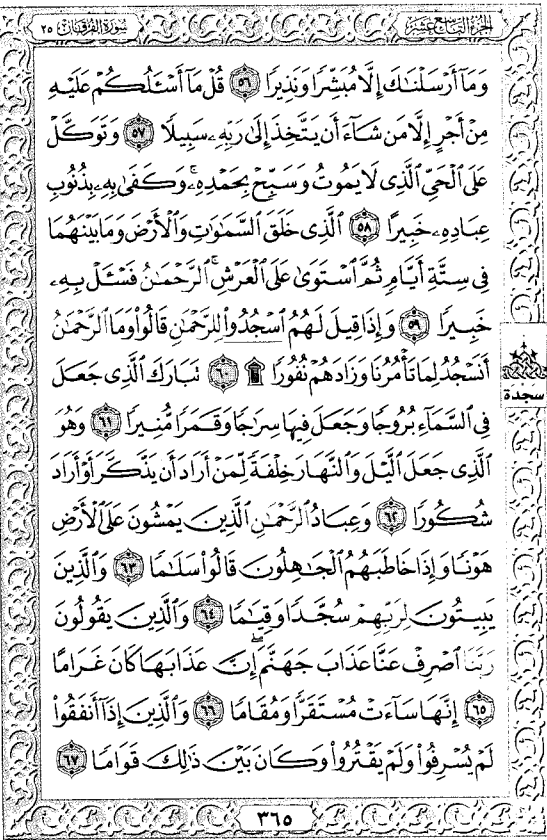 الجزء التاسع عشر
سورة الفرقان ٢٥
وَمَآ أَرْسَلْنَٰكَ إِلَّا مُبَشِّرًا وَنَذِيرًا ٥٦ قُلْ مَآ أَسْـَٔلُكُمْ عَلَيْهِ
مِنْ أَجْرٍ إِلَّا مَن شَآءَ أَن يَتَّخِذَ إِلَىٰ رَبِّهِۦ سَبِيلًا ٥٧ وَتَوَكَّلْ
عَلَى ٱلْحَىِّ ٱلَّذِى لَا يَمُوتُ وَسَبِّحْ بِحَمْدِهِۦۚ وَكَفَىٰ بِهِۦ بِذُنُوبِ
عِبَادِهِۦ خَبِيرًا ٥٨ ٱلَّذِى خَلَقَ ٱلسَّمَٰوَٰتِ وَٱلْأَرْضَ وَمَا بَيْنَهُمَا
فِى سِتَّةِ أَيَّامٍ ثُمَّ ٱسْتَوَىٰ عَلَى ٱلْعَرْشِۚ ٱلرَّحْمَٰنُ فَسْـَٔلْ بِهِۦ
خَبِيرًا ٥٩ وَإِذَا قِيلَ لَهُمُ ٱسْجُدُوا۟ لِلرَّحْمَٰنِ قَالُوا۟ وَمَا ٱلرَّحْمَٰنُ
أَنَسْجُدُ لِمَا تَأْمُرُنَا وَزَادَهُمْ نُفُورًا ۩ ٦٠ تَبَارَكَ ٱلَّذِى جَعَلَ
سجدة
فِى ٱلسَّمَآءِ بُرُوجًا وَجَعَلَ فِيهَا سِرَٰجًا وَقَمَرًا مُّنِيرًا ٦١ وَهُوَ
ٱلَّذِى جَعَلَ ٱلَّيْلَ وَٱلنَّهَارَ خِلْفَةً لِّمَنْ أَرَادَ أَن يَذَّكَّرَ أَوْ أَرَادَ
شُكُورًا ٦٢ وَعِبَادُ ٱلرَّحْمَٰنِ ٱلَّذِينَ يَمْشُونَ عَلَى ٱلْأَرْضِ
هَوْنًا وَإِذَا خَاطَبَهُمُ ٱلْجَٰهِلُونَ قَالُوا۟ سَلَٰمًا ٦٣ وَٱلَّذِينَ
يَبِيتُونَ لِرَبِّهِمْ سُجَّدًا وَقِيَٰمًا ٦٤ وَٱلَّذِينَ يَقُولُونَ
رَبَّنَا ٱصْرِفْ عَنَّا عَذَابَ جَهَنَّمَۖ إِنَّ عَذَابَهَا كَانَ غَرَامًا
٦٥ إِنَّهَا سَآءَتْ مُسْتَقَرًّا وَمُقَامًا ٦٦ وَٱلَّذِينَ إِذَآ أَنفَقُوا۟
لَمْ يُسْرِفُوا۟ وَلَمْ يَقْتُرُوا۟ وَكَانَ بَيْنَ ذَٰلِكَ قَوَامًا ٦٧
٣٦٥